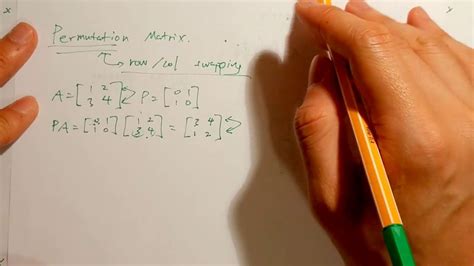 Permutation Matrix.
row/col swapping
A = [1 2; 3 4] P = [0 1; 1 0]
PA = [0 1; 1 0] [1 2; 3 4] = [3 4; 1 2]